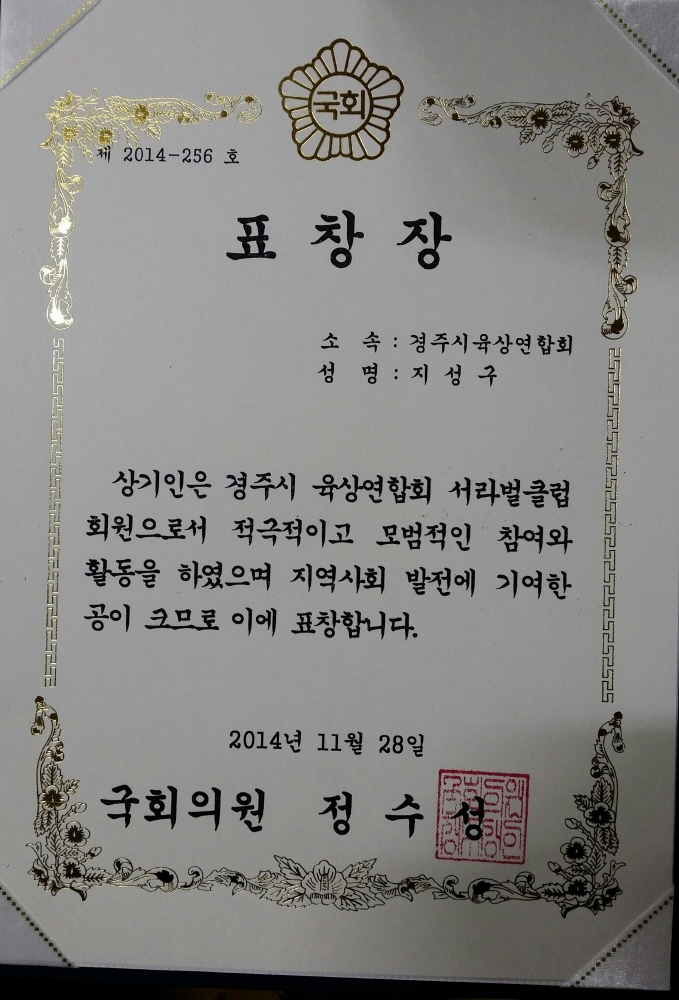 국회
제 2014-256 호
표 창 장
소 속 : 경주시육상연합회
성 명 : 지 성 구
상기인은 경주시 육상연합회 서라벌클럽
회원으로서 적극적이고 모범적인 참여와
활동을 하였으며 지역사회 발전에 기여한
공이 크므로 이에 표창합니다.
2014년 11월 28일
국회의원 정 수 성